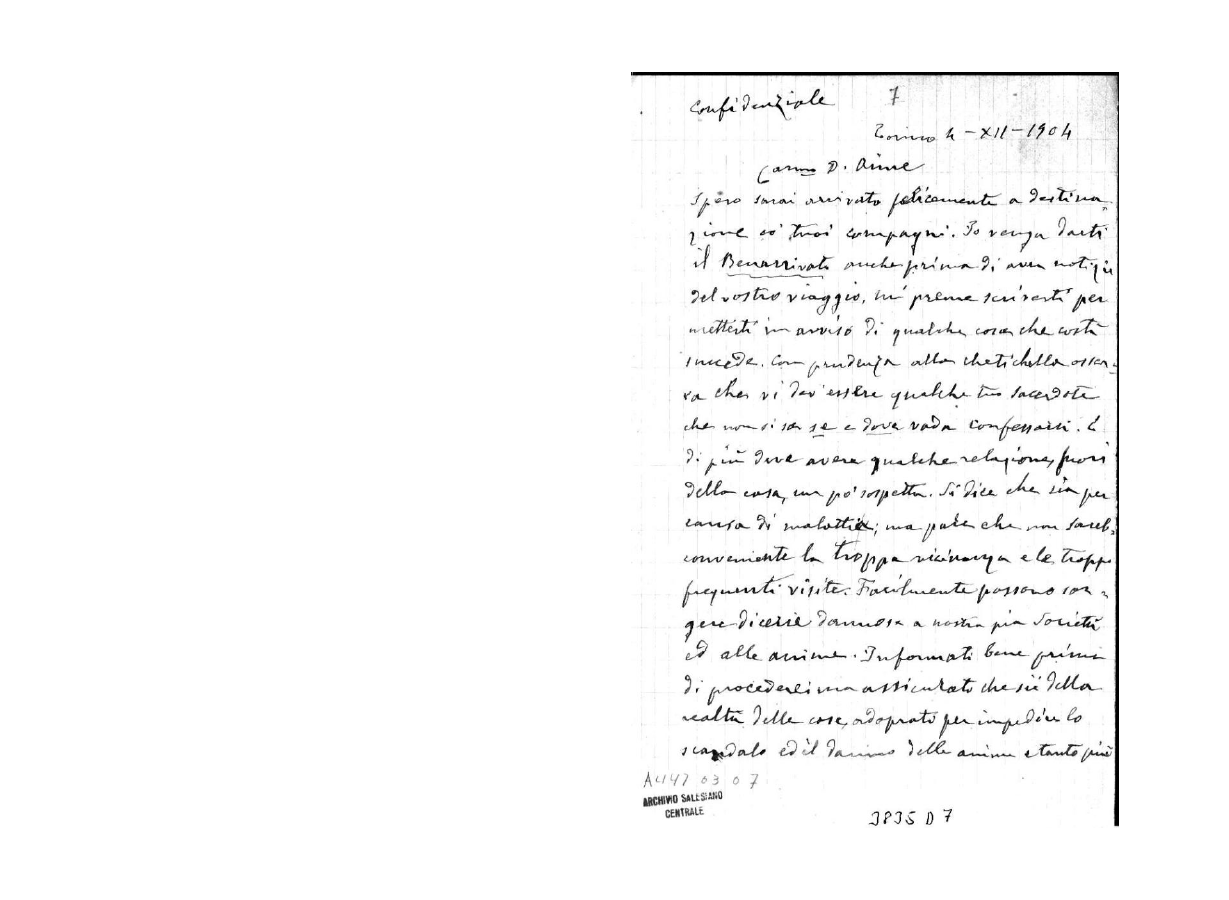 Confidenziale 7
Torino 4-XII-1904
Car.mo D. Aime
Spero sarai arrivato felicemente a destina-
zione co' tuoi compagni. Io vengo darti
il Benarrivato anche prima di aver notizie
del vostro viaggio, mi preme scriverti per
metterti in avviso di qualche cosa che costì
succede. Con prudenza alla chetichella osser-
va che vi dev'essere qualche tuo sacerdote
che non si sa se e dove vada confessarsi. E
di più deve avere qualche relazione, fuori
della casa, un po' sospetta. Si dice che sia per
causa di malattia; ma pare che non sareb-
conveniente la troppa vicinanza e le troppe
frequenti visite. Facilmente possono sor-
gere dicerie dannose a nostra pia Società
ed alle anime. Informati bene prima
di procedere; ma assicurato che sii della
realtà delle cose, adoprati per impedire lo
scandalo ed il danno delle anime e tanto più
A447 03 07
ARCHIVIO SALESIANO
CENTRALE
3835 D 7